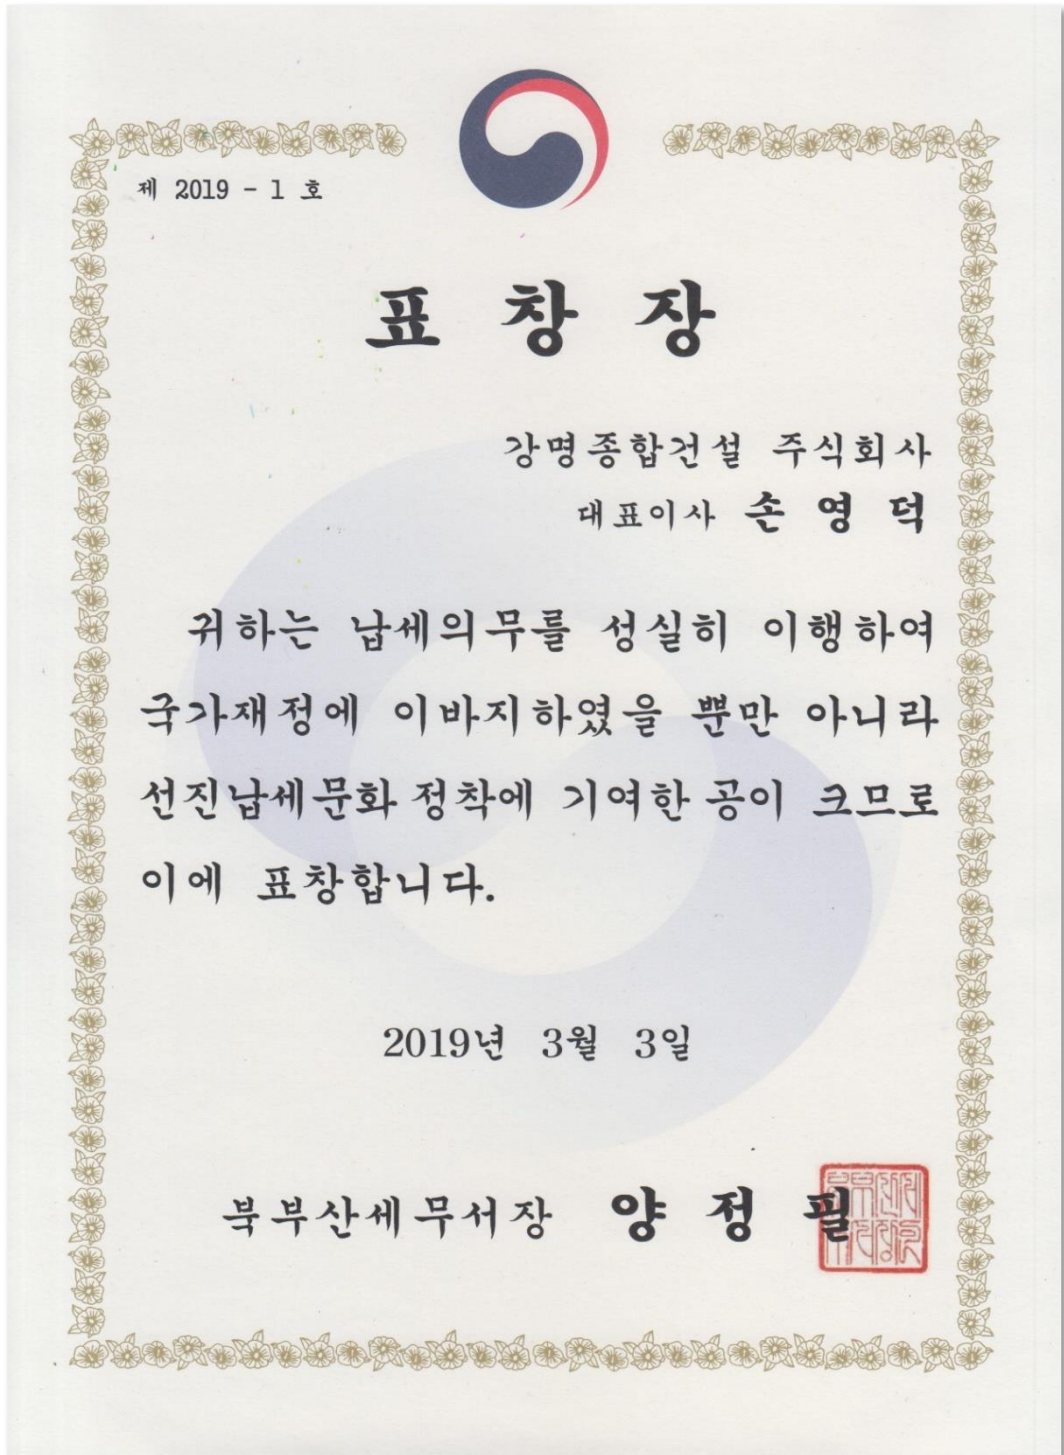 제 2019 - 1 호
표 창 장
강명종합건설 주식회사
대표이사 손 영 덕
귀하는 납세의무를 성실히 이행하여
국가재정에 이바지하였을 뿐만 아니라
선진납세문화 정착에 기여한 공이 크므로
이에 표창합니다.
2019년 3월 3일
북부산세무서장 양 정 필